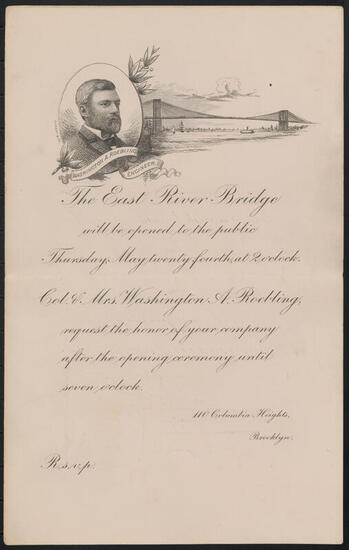 WASHINGTON A. ROEBLING
ENGINEER
The East River Bridge
will be opened to the public
Thursday, May twenty-fourth, at 2 o'clock.
Col. & Mrs. Washington A. Roebling,
request the honor of your company
after the opening ceremony until
seven o'clock.
110 Columbia Heights,
Brooklyn.
R.s.v.p.